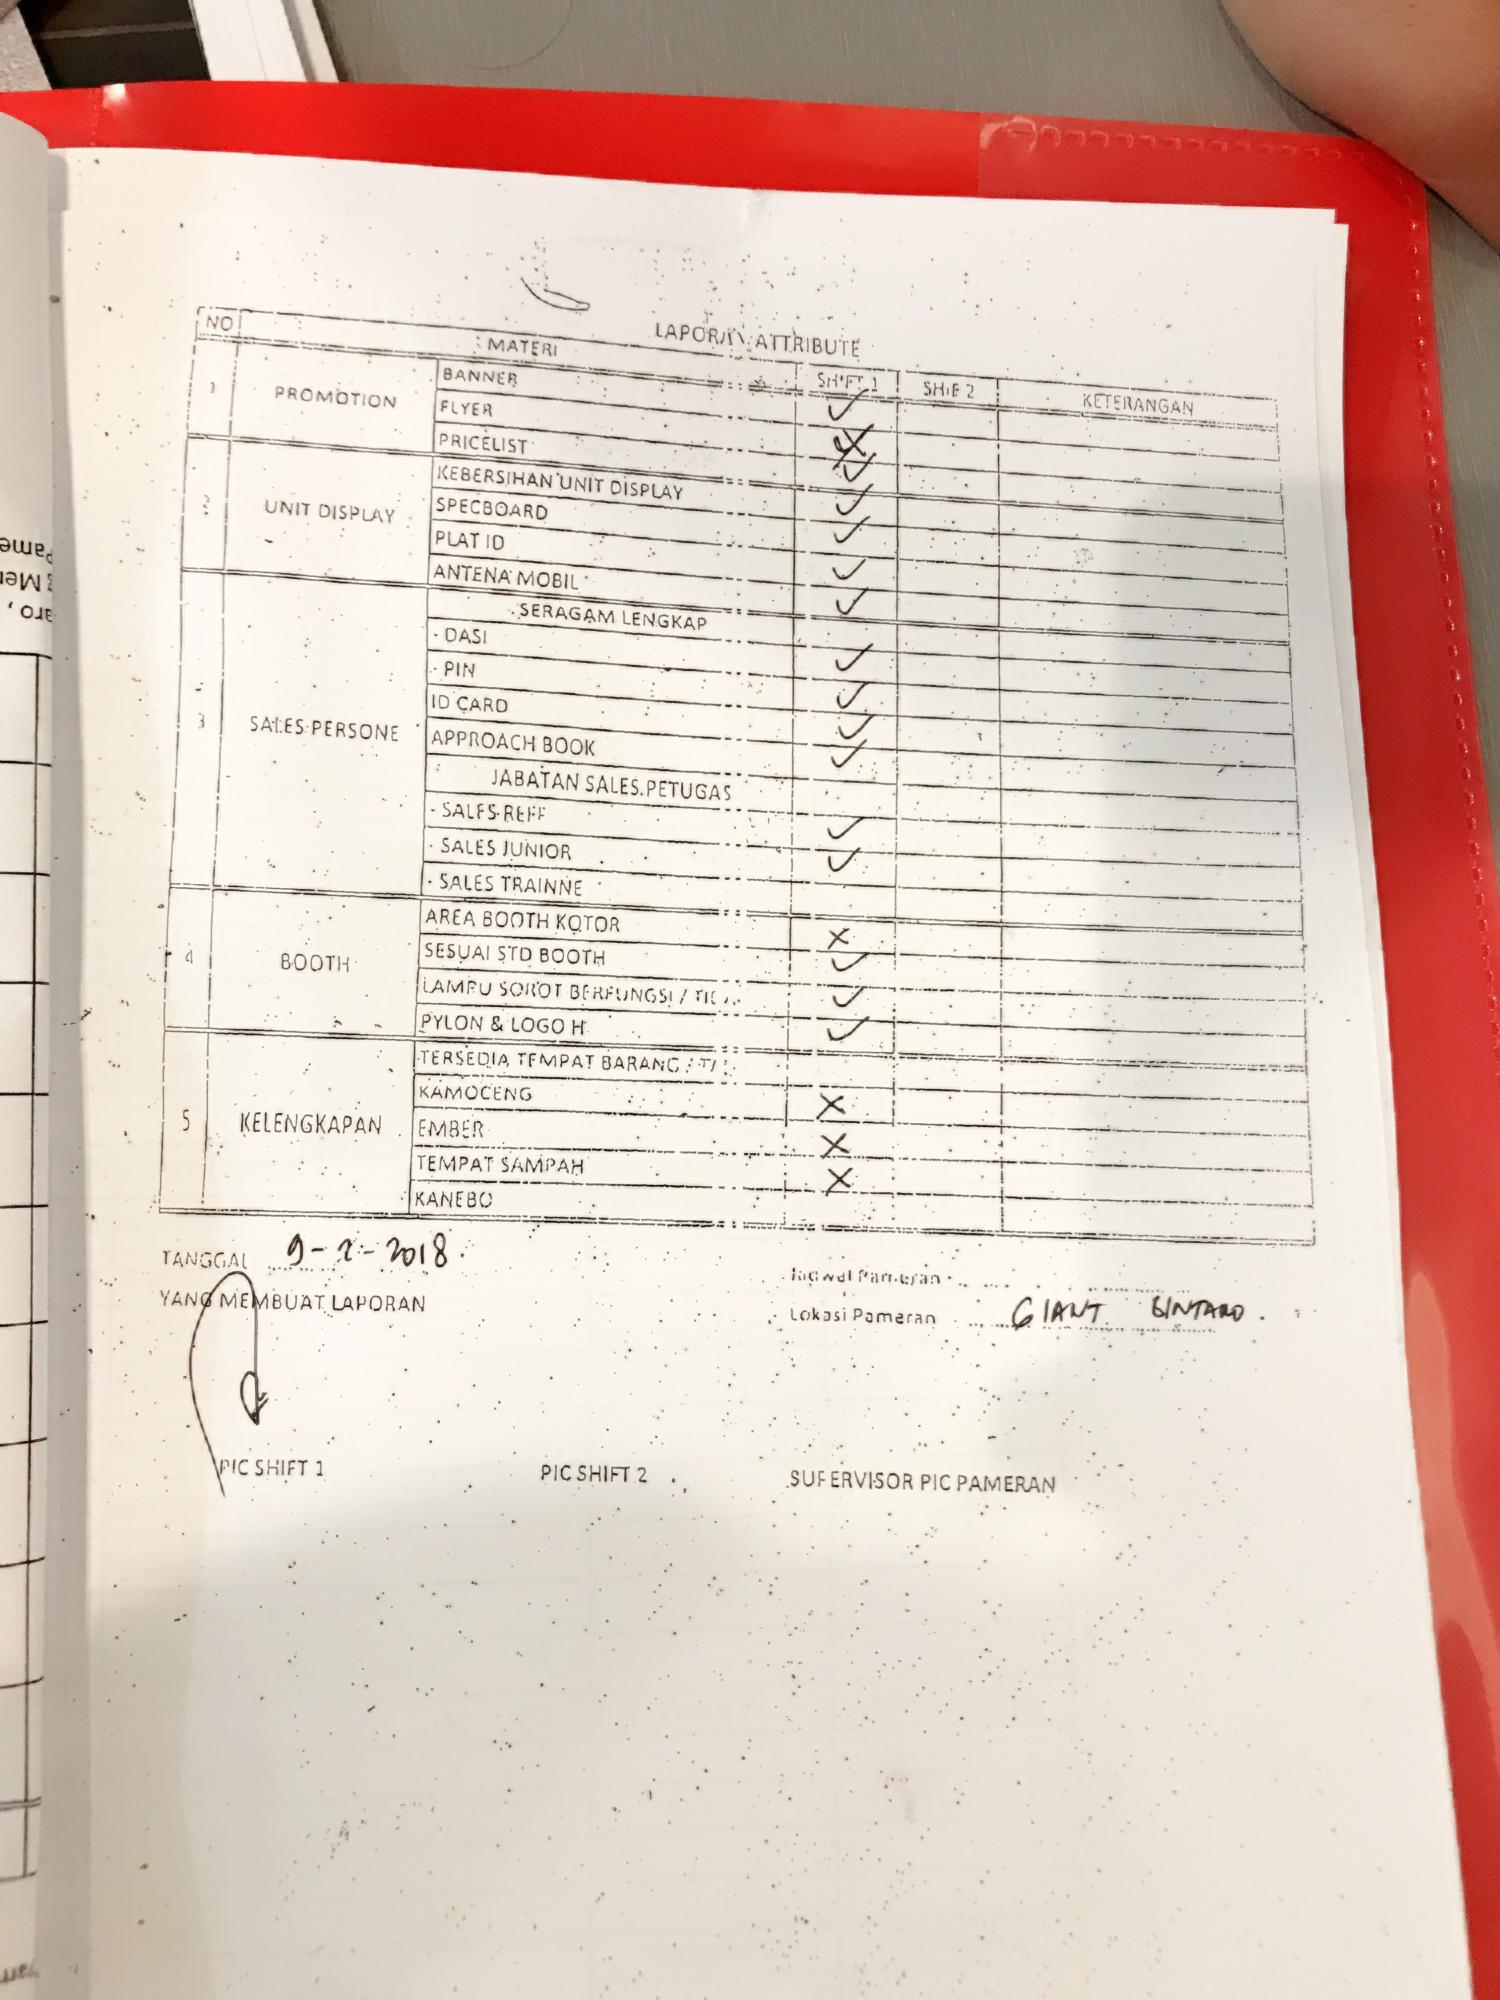 LAPORAN ATTRIBUTE
NO MATERI SHIFT 1 SHIF 2 KETERANGAN
1 PROMOTION BANNER ✓
FLYER ✗
PRICELIST ✓
2 UNIT DISPLAY KEBERSIHAN UNIT DISPLAY ✓
SPECBOARD ✓
PLAT ID ✓
ANTENA MOBIL ✓
3 SALES PERSONE SERAGAM LENGKAP
- DASI ✓
- PIN ✓
ID CARD ✓
APPROACH BOOK ✓
JABATAN SALES PETUGAS
- SALES REFF ✓
- SALES JUNIOR ✓
- SALES TRAINNE
4 BOOTH AREA BOOTH KOTOR ✗
SESUAI STD BOOTH ✓
LAMPU SOROT BERFUNGSI / ✓
PYLON & LOGO H ✓
5 KELENGKAPAN TERSEDIA TEMPAT BARANG
KAMOCENG ✗
EMBER ✗
TEMPAT SAMPAH ✗
KANEBO
TANGGAL 9-2-2018.
Jadwal Pameran
YANG MEMBUAT LAPORAN
Lokasi Pameran GIANT BINTARO.
PIC SHIFT 1 PIC SHIFT 2 SUPERVISOR PIC PAMERAN